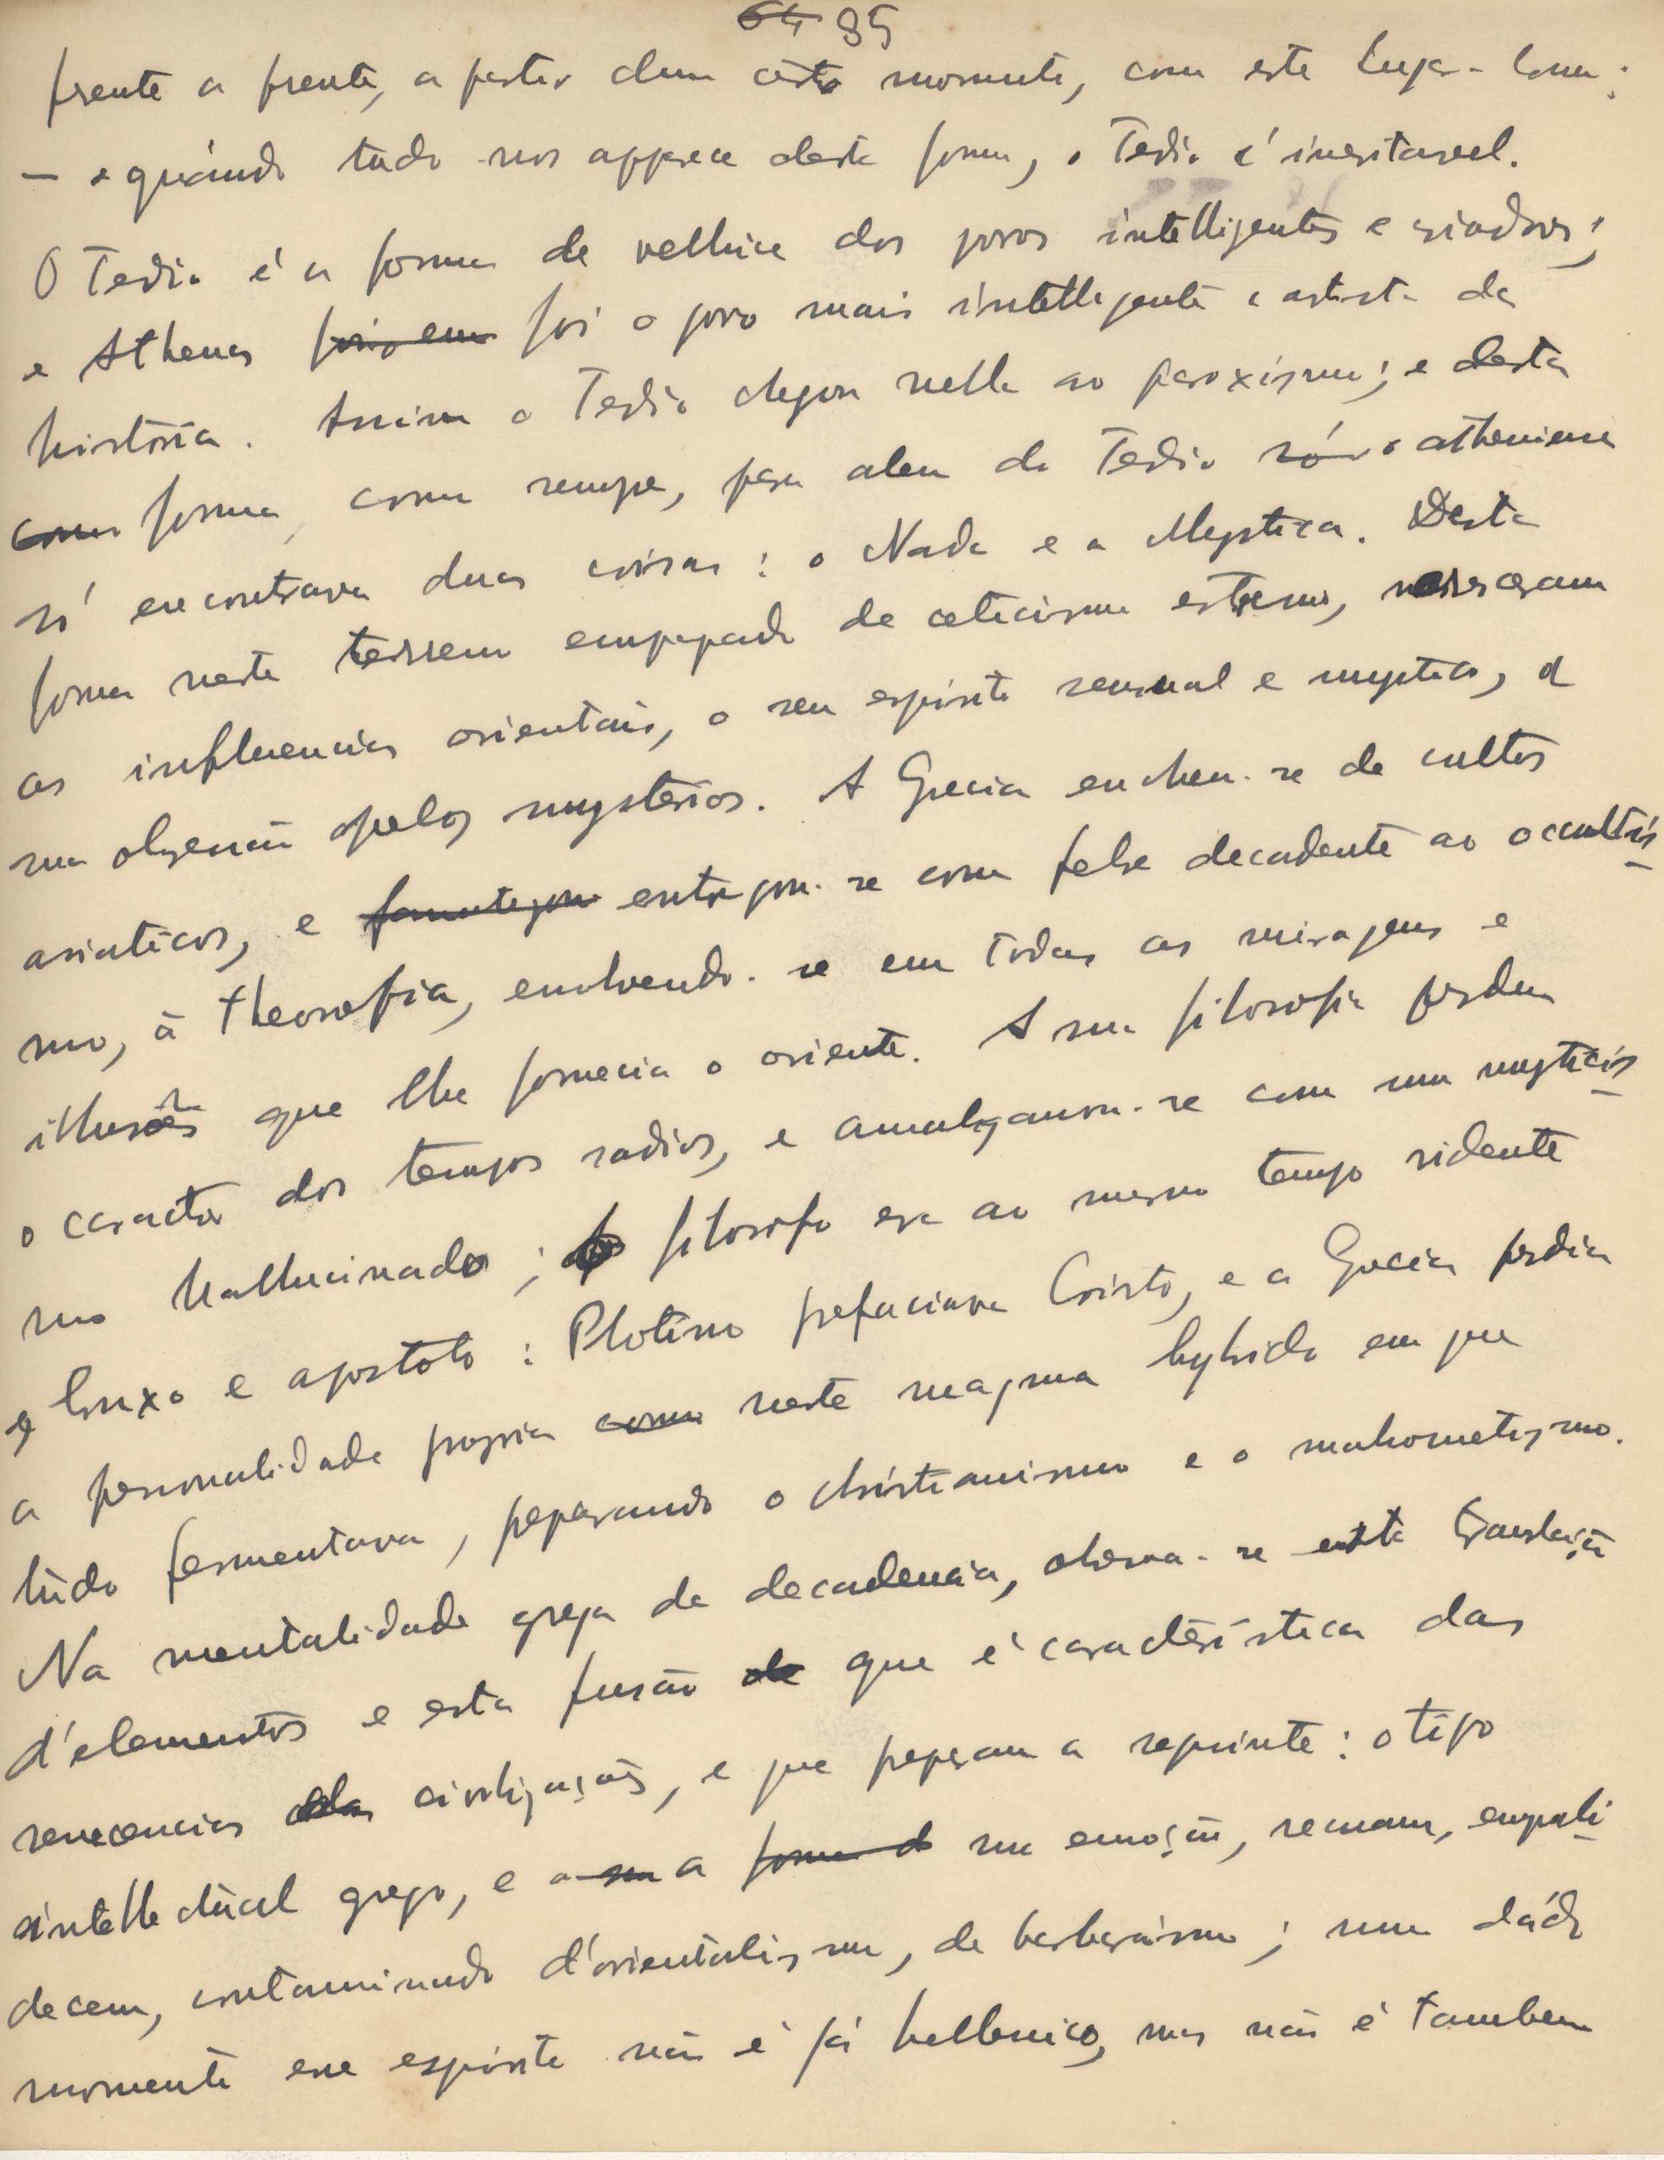 64 85
frente a frente, a partir dum certo momento, com este lugar-comum:
— e quando tudo nos apparece desta forma, o Tedio é inevitavel.
O Tedio é a forma de velhice dos povos intelligentes e criadores;
e Athenas foi o povo mais intelligente e artista da
historia. Assim o Tedio chegou nella ao paroxismo; e desta
forma, como sempre, para alem do Tedio só o atheniense
só encontrava duas coisas: o Nada e a Mystica. Desta
forma neste terreno empapado de ceticismo extremo,
as influencias orientais, o seu espirito sensual e mystico, a
sua obsessão pelos mysterios. A Grecia encheu-se de cultos
asiaticos, e entregou-se com febre decadente ao occultis-
mo, á theosofia, envolvendo-se em todas as miragens e
illusões que lhe fornecia o oriente. A sua filosofia perdeu
o caracter dos tempos sadios, e amalgamou-se com um mysticis-
mo hallucinado; o filosofo era ao mesmo tempo vidente
e bruxo e apostolo: Plotino prefaciava Cristo, e a Grecia perdia
a personalidade propria neste magma hybrido em que
tudo fermentava, preparando o christianismo e o mahometismo.
Na mentalidade grega da decadencia, observa-se esta translação
d'elementos e esta fusão que é caracterìstica das
civilizações, e que preparam a seguinte: o tipo
intellectual grego, e a sua emoção, recuam, empali-
decem, contaminado d'orientalismo, de barbarismo; num dádo
momento esse espirito não é já hellenico, mas não é tambem